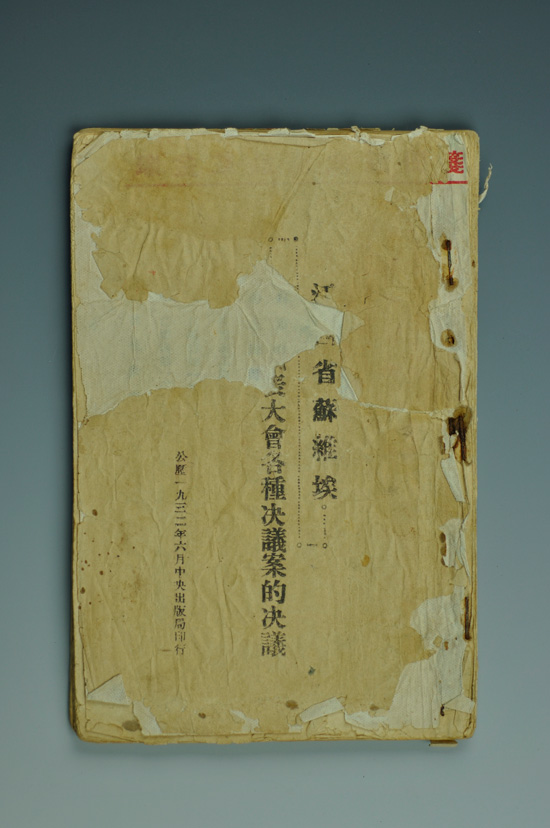 江西省蘇維埃
大會各種决議案的决議
公歷一九三二年六月中央出版局印行